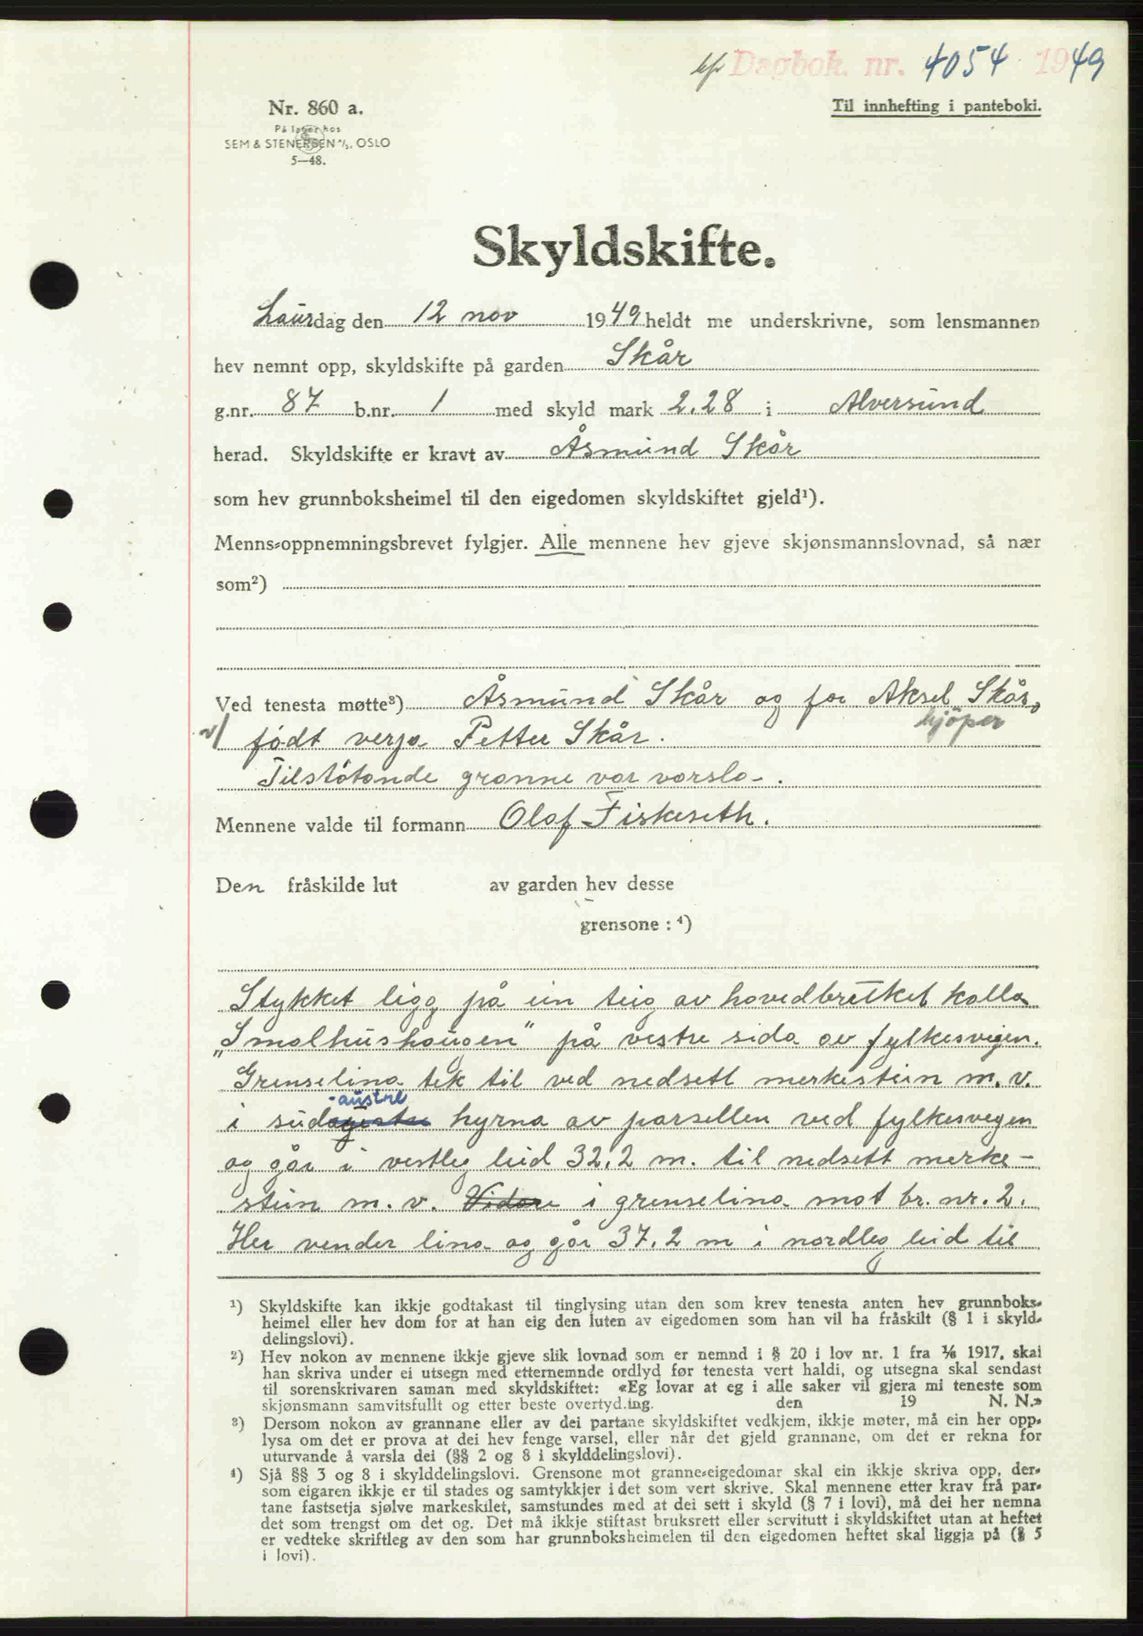 kp Dagbok. nr. 4054 1949
Nr. 860 a.
Til innhefting i panteboki.
På lager hos
SEM & STENERSEN A/S, OSLO
5—48.
Skyldskifte.
Laurdag den 12 nov 1949 heldt me underskrivne, som lensmannen
hev nemnt opp, skyldskifte på garden Skår
g.nr. 87 b.nr. 1 med skyld mark 2.28 i Alversund
herad. Skyldskifte er kravt av Åsmund Skår
som hev grunnboksheimel til den eigedomen skyldskiftet gjeld¹).
Menns-oppnemningsbrevet fylgjer. Alle mennene hev gjeve skjønsmannslovnad, så nær
som²)
Ved tenesta møtte³) Åsmund Skår og for Aksel Skår,
kjöper
født verja Petter Skår.
Tilstøtande granne var varsla.
Mennene valde til formann Olaf Fiskeseth.
Den fråskilde lut av garden hev desse
grensone : ⁴)
Stykket ligg på ein teig av hovedbruket kalla
„Smalhushaugen" på vestre sida av fylkesvegen.
Grenselina tek til ved nedsett merkestein m. v.
-austre
i sud hyrna av parsellen ved fylkesvegen
og går i vestleg leid 32,2 m. til nedsett merke-
stein m. v. Vidare i grenselina mot br. nr. 2.
Her vender lina og går 37,2 m i nordleg leid til
¹) Skyldskifte kan ikkje godtakast til tinglysing utan den som krev tenesta anten hev grunnboks-
heimel eller hev dom for at han eig den luten av eigedomen som han vil ha fråskilt (§ 1 i skyld-
delingslovi).
²) Hev nokon av mennene ikkje gjeve slik lovnad som er nemnd i § 20 i lov nr. 1 fra 1/6 1917, skal
han skriva under ei utsegn med etternemnde ordlyd før tenesta vert haldi, og utsegna skal sendast
til sorenskrivaren saman med skyldskiftet: «Eg lovar at eg i alle saker vil gjera mi teneste som
skjønsmann samvitsfullt og etter beste overtyding. den 19 N. N.»
³) Dersom nokon av grannane eller av dei partane skyldskiftet vedkjem, ikkje møter, må ein her opp-
lysa om det er prova at dei hev fenge varsel, eller når det gjeld grannane, om det er rekna for
uturvande å varsla dei (§§ 2 og 8 i skylddelingslovi).
⁴) Sjå §§ 3 og 8 i skylddelingslovi. Grensone mot granne-eigedomar skal ein ikkje skriva opp, der-
som eigaren ikkje er til stades og samtykkjer i det som vert skrive. Skal mennene etter krav frå par-
tane fastsetja sjølve markeskilet, samstundes med at dei sett i skyld (§ 7 i lovi), må dei her nemna
det som trengst om det og. Det må ikkje stiftast bruksrett eller servitutt i skyldskiftet utan at heftet
er vedteke skriftleg av den som har grunnboksheimelen til den eigedomen heftet skal liggja på (§ 5
i lovi).